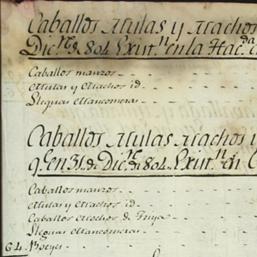 Caballos Mulas y Machos
Dic.re de 804 Exist.n en la Hac.da
Caballos manzos
Mulas y Machos id.
Yeguas Mancornera
Caballos Mulas Machos y
q.e en 31 de Dic.re de 804 Exist.n en
Caballos manzos
Mulas y Machos id.
Caballos Machos de
Yeguas Mancorneras
64. Bueyes